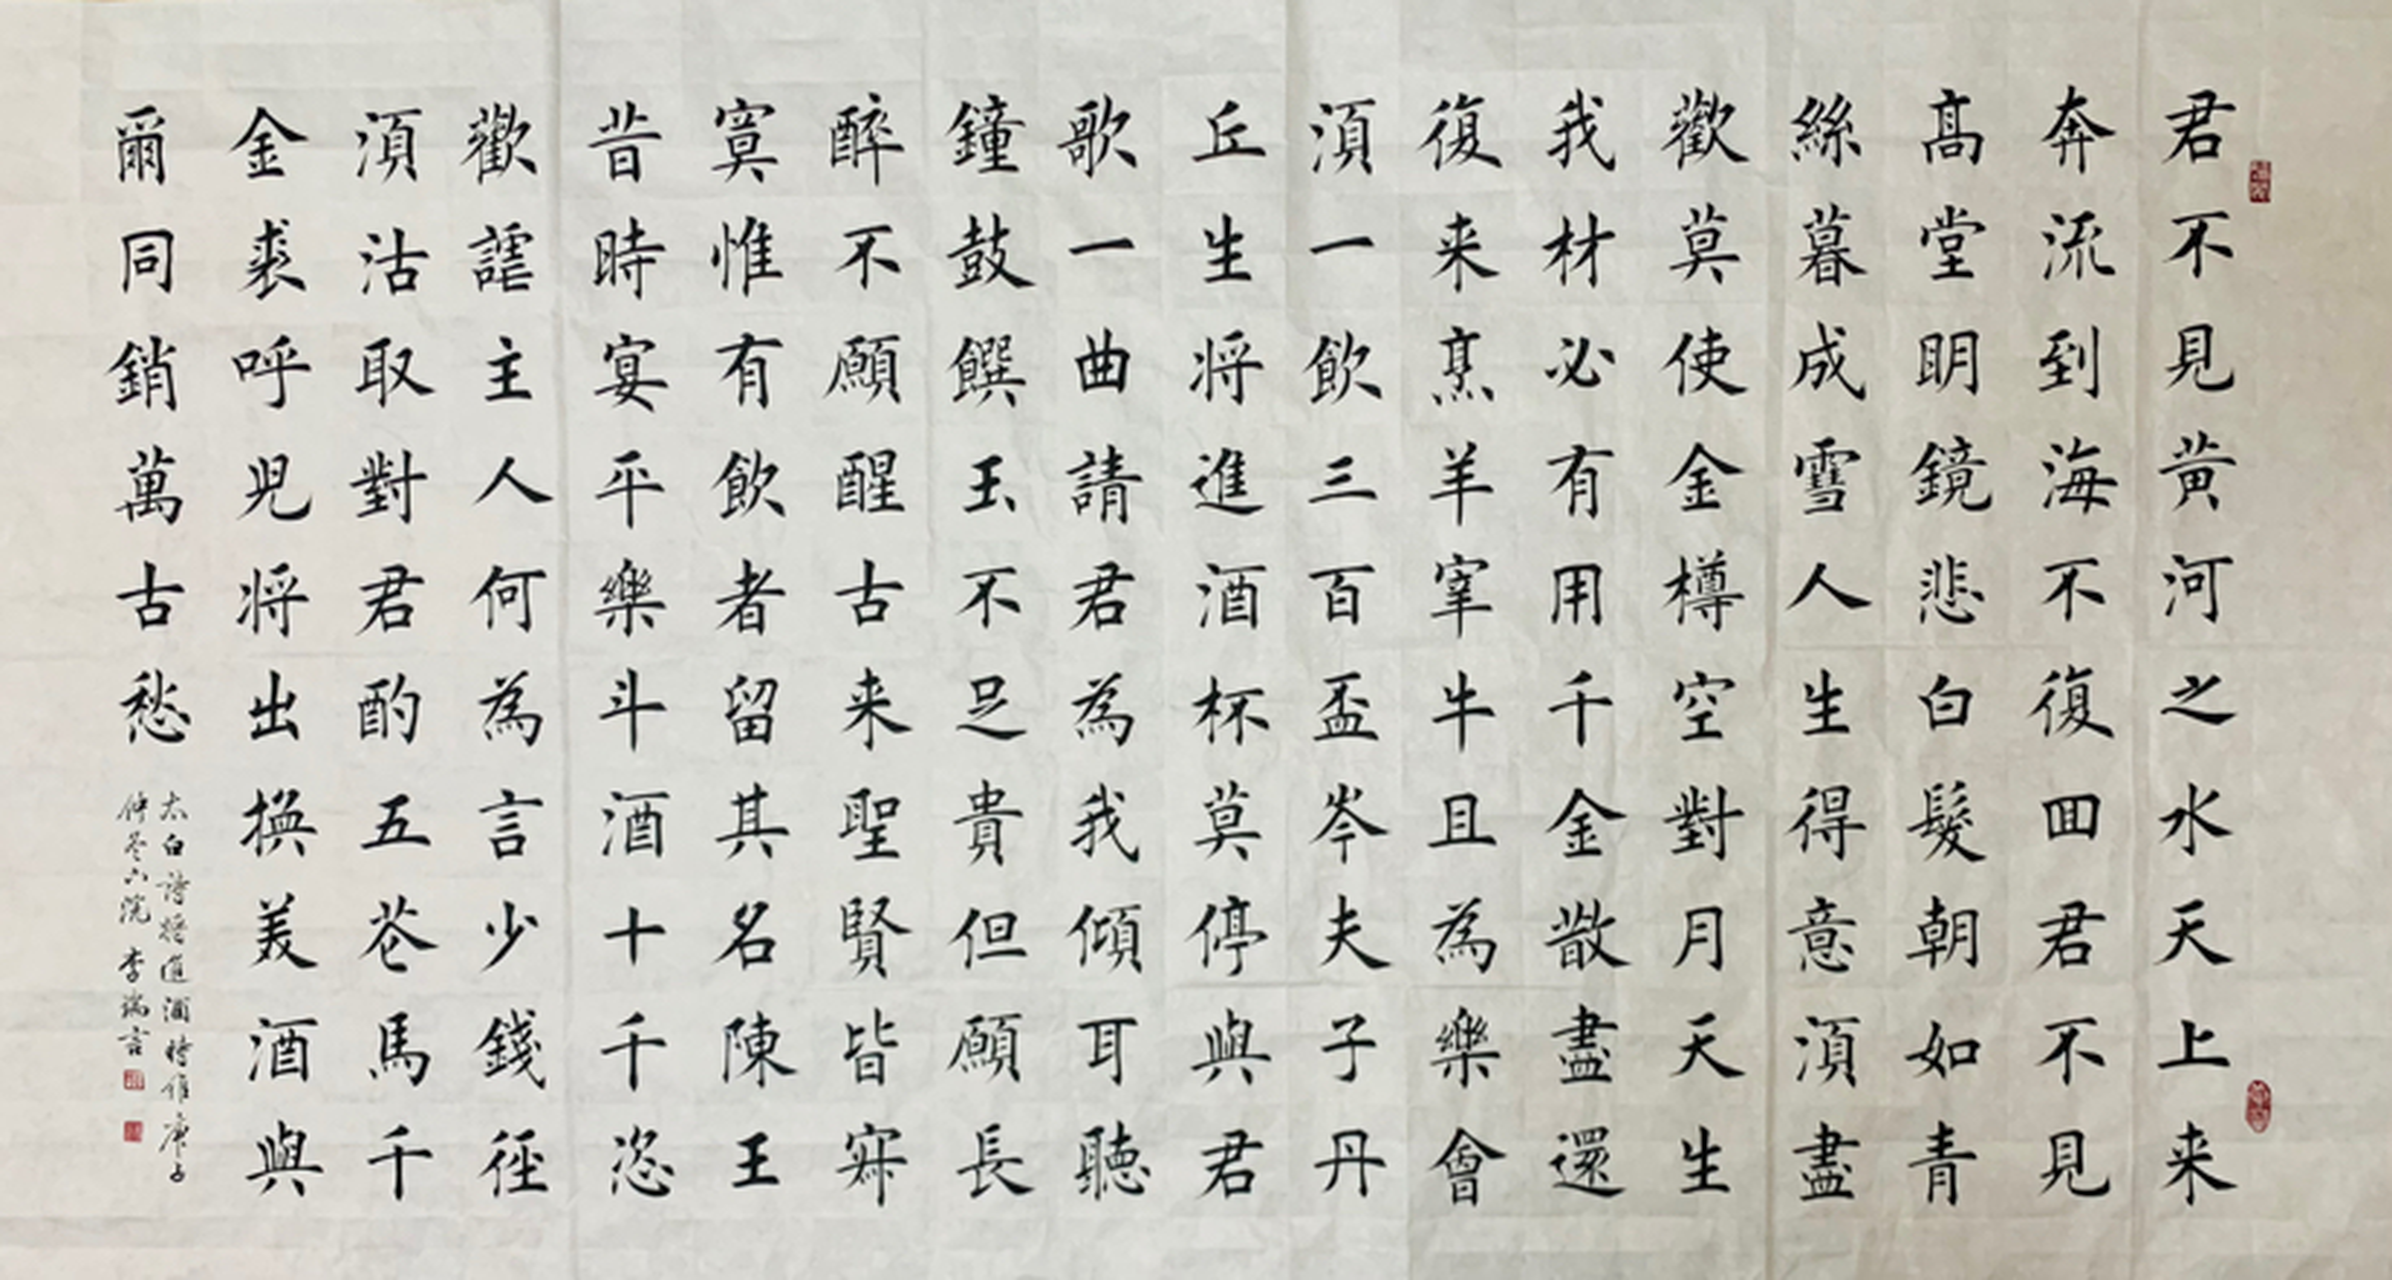 君不見黄河之水天上来
奔流到海不復囬君不見
髙堂明鏡悲白髮朝如青
絲暮成雪人生得意湏盡
歡莫使金樽空對月天生
我材必有用千金散盡還
復来烹羊宰牛且為樂會
湏一飲三百盃岑夫子丹
丘生将進酒杯莫停與君
歌一曲請君為我傾耳聽
鐘鼓饌玉不足貴但願長
醉不願醒古来聖賢皆寂
寞惟有飲者留其名陳王
昔時宴平樂斗酒十千恣
歡謔主人何為言少錢徑
湏沽取對君酌五花馬千
金裘呼兒将出換美酒與
爾同銷萬古愁
太白詩将進酒時維庚子
仲冬浣李瑞言